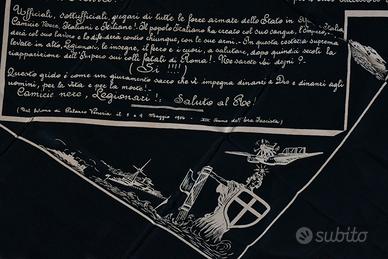 Ufficiali, sottufficiali, gregari di tutte le forze armate dello Stato in
Camicie Nere, Italiani e Italiane! Il popolo Italiano ha creato col suo sangue, l'Impero.
rà col suo lavoro e lo difenderà contro chiunque, con le sue armi. In questa certezza suprema
levate in alto, Legionari, le insegne, il ferro e i cuori, a salutare, dopo quindici secoli la
riapparizione dell'Impero sui colli fatali di Roma! Ne sarete voi degni?
(Si !!!!)
Questo grido è come un giuramento sacro che vi impegna dinanzi a Dio e dinanzi agli
uomini, per la vita e per la morte!
Camicie nere, Legionari: Saluto al Re!
Palazzo Venezia il 9 Maggio XIV
subito